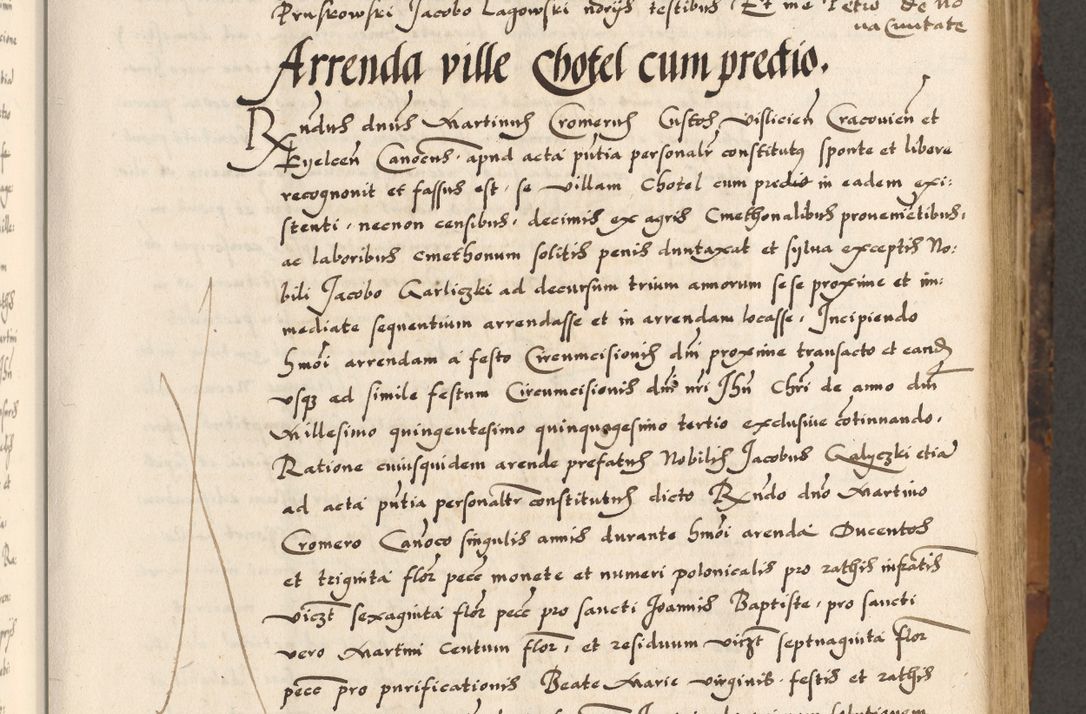 Pruskowski Jacobo Lagowski nōrijs testibus Et me Petro de No
va Civitate
Arrenda ville Chotel cum predio.
Rndus dnus Martinus Cromerus Custos Visliciēn Cracoviēn et
Kyelcēn Canōcus, apud acta pūtia personalr constitutus sponte et libere
recognovit et fassus est, se villam Chotel cum predio in eadem exi:
stenti, necnon censibus, decimis ex agris Cmethonalibus provenietibus,
ac laboribus cmethonum solitis penis duntaxat et sylva exceptis No:
bili Jacobo Garliczki ad decursum trium annorum sese proxime et im:
mediate sequentium arrendasse et in arrendam locasse, Incipiendo
hmōi arrendam a festo Circumcisionis dnī proxime transacto et eand
usq̄ ad simile festum Circumcisionis dnī nrī Jhū Chrī de anno dnī
Millesimo quingentesimo quinquagesimo tertio exclusive cōtinuando,
Ratione cuiusquidem arende prefatus Nobilis Jacobus Galyczki etiā
ad acta pūtia personaltr constitutus dicto Rndo dnō Martino
Cromero Canōco singulis annis durante hmōi arenda Ducentos
et triginta flor pecc monete et numeri polonicalis pro rathis infratis
viczt sexaginta flor pecc pro sancti Joannis Baptiste, pro sancti
vero Martini Centum flor, et residuum viczt septuaginta flor
pecc pro purificationis Beate Marie virginis, festis et rathis